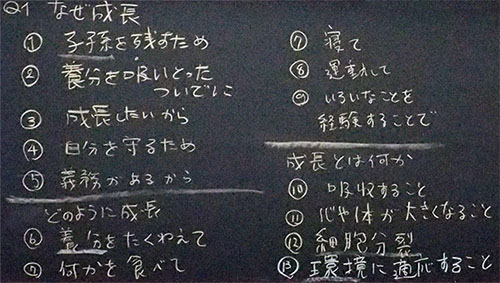 Q1 なぜ成長
① 子孫を残すため
② 養分を吸いとった
ついでに
③ 成長したいから
④ 自分を守るため
⑤ 義務があるから
どのように成長
⑥ 養分をたくわえて
⑦ 何かを食べて
⑦ 寝て
⑧ 運動して
⑨ いろいなことを
経験することで
成長とは何か
⑩ 吸収すること
⑪ 心や体が大きくなること
⑫ 細胞分裂
⑬ 環境に適応すること